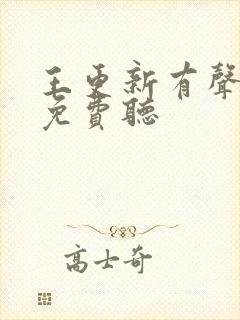 王更新有聲
免費聽
高士奇